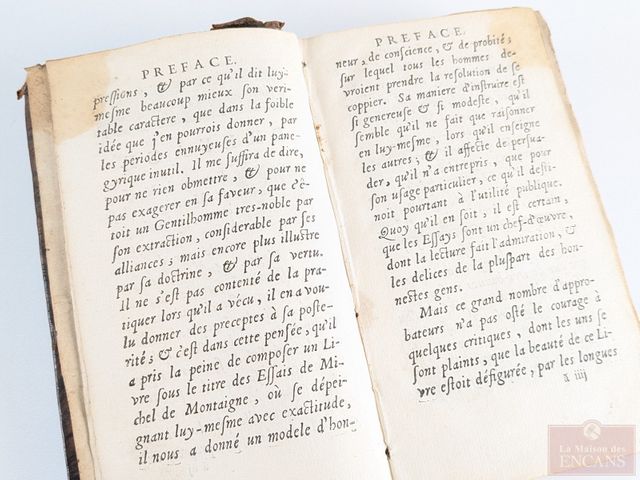 PREFACE.
pressions, & par ce qu'il dit luy-
mesme beaucoup mieux son veri-
table caractere, que dans la foible
idée que j'en pourrois donner, par
les periodes ennuyeuses d'un pane-
gyrique inutil. Il me suffira de dire,
pour ne rien obmettre, & pour ne
pas exagerer en sa faveur, que c'ê-
toit un Gentilhomme tres-noble par
son extraction, considerable par ses
alliances; mais encore plus illustre
par sa doctrine, & par sa vertu.
Il ne s'est pas contenté de la pra-
tiquer lors qu'il a vécu, il en a vou-
lu donner des preceptes à sa poste-
rité; & c'est dans cette pensée, qu'il
a pris la peine de composer un Li-
vre sous le titre des Essais de Mi-
chel de Montaigne, où se dépei-
gnant luy-mesme avec exactitude,
il nous a donné un modele d'hon-
PREFACE.
neur, de conscience, & de probité;
sur lequel tous les hommes de-
vroient prendre la resolution de se
coppier. Sa maniere d'instruire est
si genereuse & si modeste, qu'il
semble qu'il ne fait que raisonner
en luy-mesme, lors qu'il enseigne
les autres; & il affecte de persua-
der, qu'il n'a entrepris, que pour
son usage particulier, ce qu'il desti-
noit pourtant à l'utilité publique.
Quoy qu'il en soit, il est certain,
que les Essays sont un chef-d'œuvre,
dont la lecture fait l'admiration, &
les delices de la pluspart des hon-
nestes gens.
Mais ce grand nombre d'appro-
bateurs n'a pas osté le courage à
quelques critiques, dont les uns se
sont plaints, que la beauté de ce Li-
vre estoit défigurée, par les longues
a iiij
La Maison des
ENCANS